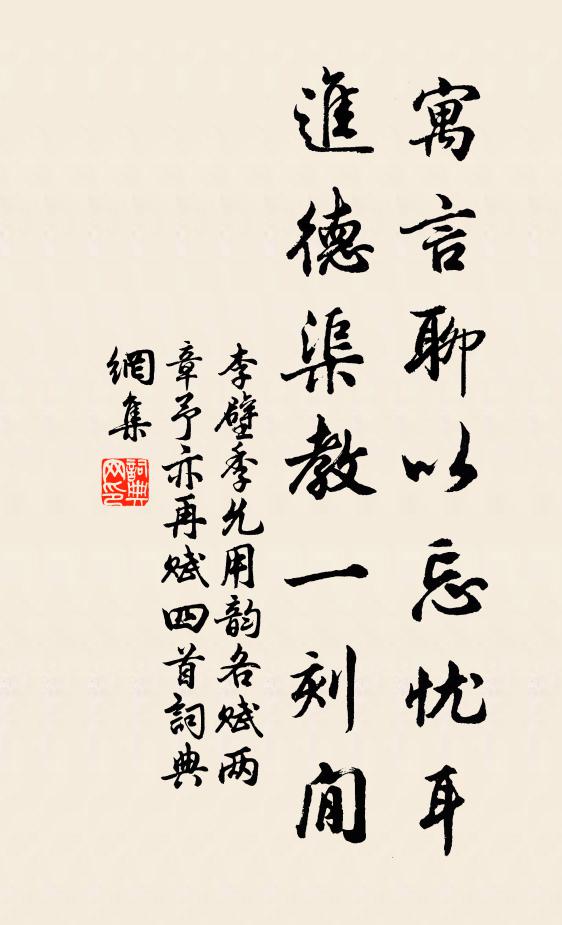 寓言聊以忘忧耳
進德渠教一刻間
李壁季允用韵各賦两
章予亦再赋四首詞典
網集
詞典
网印